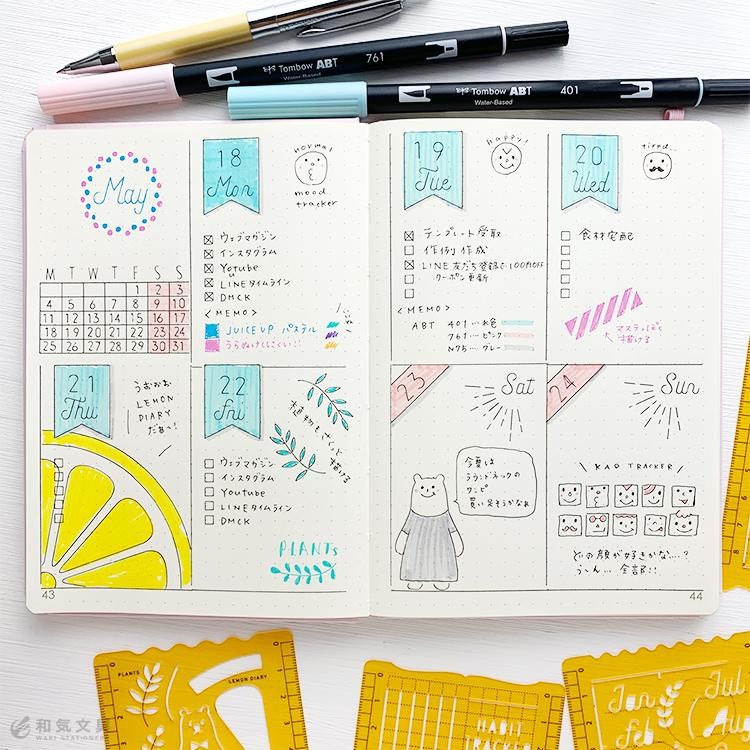 Tombow ABT 761
Water-Based
Tombow ABT 401
Water-Based
May
M T W T F S S
1 2 3
4 5 6 7 8 9 10
11 12 13 14 15 16 17
18 19 20 21 22 23 24
25 26 27 28 29 30 31
18
Mon
normal
mood
tracker
ウェブマガジン
インスタグラム
Yotube
u
LINEタイムライン
DMCK
<MEMO>
JUICE UP パステル
うらぬけしにくい!!
19
Tue
happy!
テンプレート受取
作例作成
LINE友だち登録で100円OFF
クーポン更新
<MEMO>
ABT 401...水色
761...ピンク
N75...グレー
20
Wed
tired...
食材宅配
マステっぽく
描ける
21
Thu
うおぉぉ
LEMON
DIARY
だぁ〜!
22
Fri
植物もさくっと
描ける
ウェブマガジン
インスタグラム
Youtube
LINEタイムライン
DMCK
PLANTS
23
Sat
今夏は
ラウンドネックの
ワンピ
買い足そうかなぁ
24
Sun
KAO TRACKER
どの顔が好きかな...?
う〜ん... 全部!!
43
44
PLANTS
LEMON DIARY
HABIT
TRACKER
Jan
Feb
Jul
Au
和気文具
WAKI STATIONER